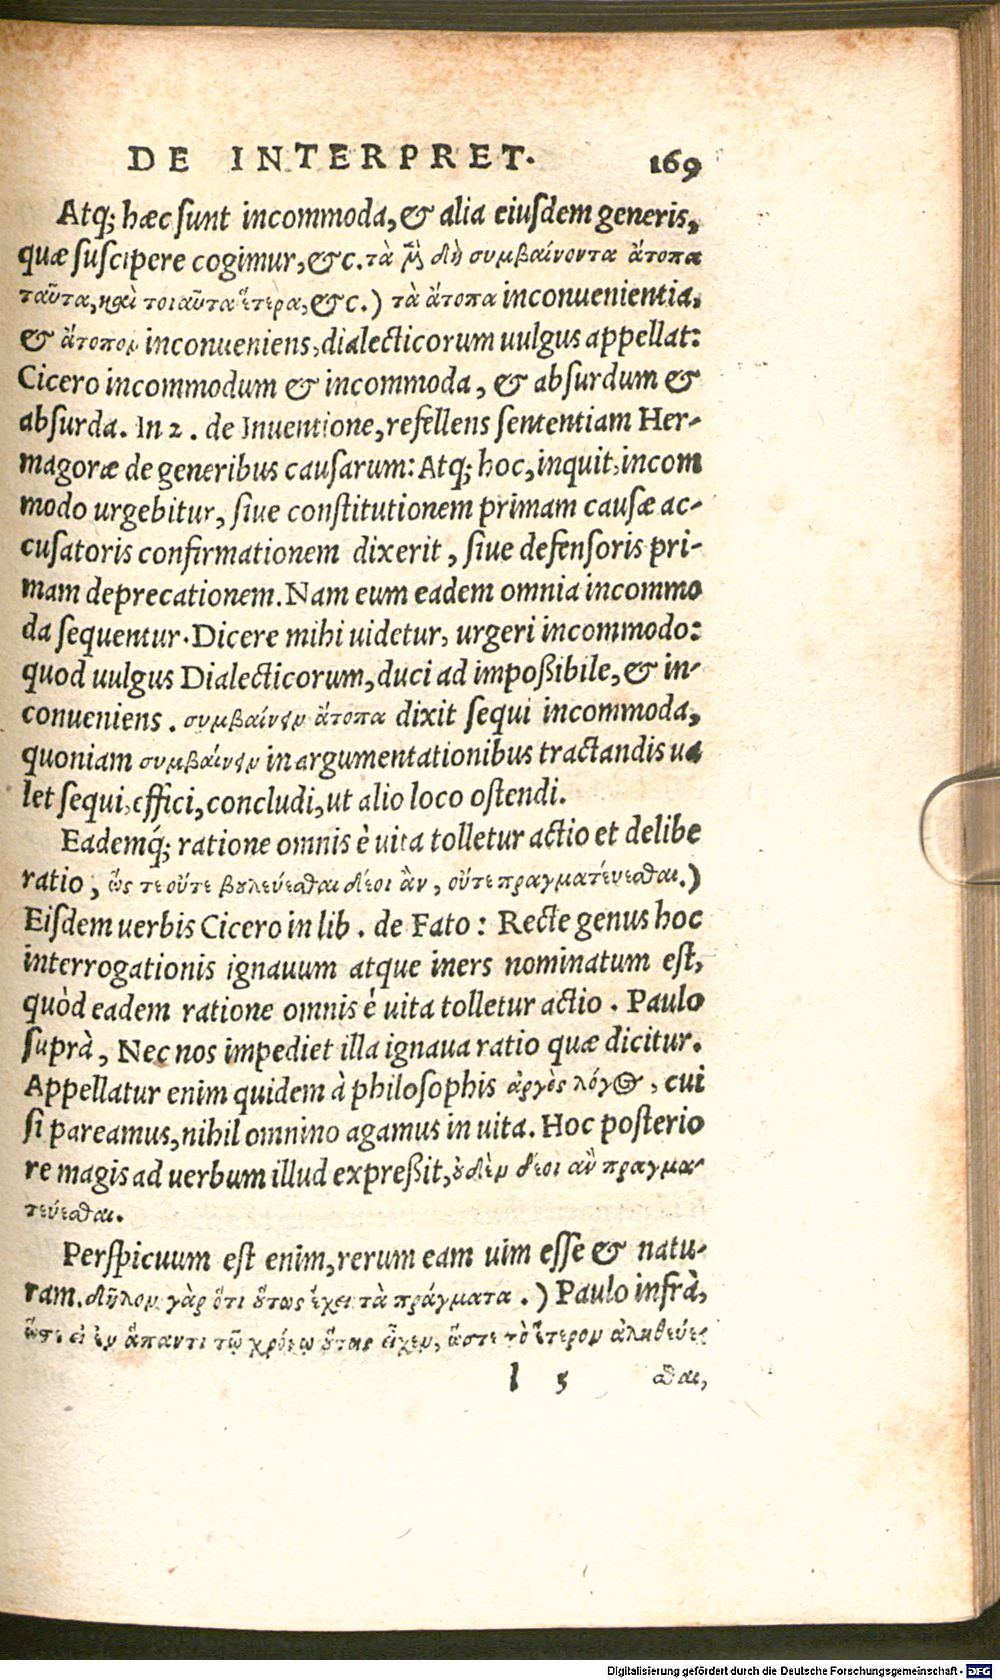 DE INTERPRET. 169
Atq; hæc sunt incommoda, & alia eiusdem generis,
quæ suscipere cogimur, &c. τὰ μὲν δὴ συμβαίνοντα ἄτοπα
ταῦτα, καὶ τοιαῦτα ἕτερα, &c.) τὰ ἄτοπα inconuenientia,
& ἄτοπον inconueniens, dialecticorum uulgus appellat:
Cicero incommodum & incommoda, & absurdum &
absurda. In 2. de Inuentione, refellens sententiam Her-
magoræ de generibus causarum: Atq; hoc, inquit, incom
modo urgebitur, siue constitutionem primam causæ ac-
cusatoris confirmationem dixerit, siue defensoris pri-
mam deprecationem. Nam eum eadem omnia incommo
da sequentur. Dicere mihi uidetur, urgeri incommodo:
quod uulgus Dialecticorum, duci ad impoßibile, & in-
conueniens. συμβαίνειν ἄτοπα dixit sequi incommoda,
quoniam συμβαίνειν in argumentationibus tractandis ua
let sequi, effici, concludi, ut alio loco ostendi.
Eademq́; ratione omnis è uita tolletur actio et delibe
ratio, ὥς τε οὔτε βουλεύεσθαι δέοι ἂν, οὔτε πραγματεύεσθαι.)
Eisdem uerbis Cicero in lib. de Fato: Recte genus hoc
interrogationis ignauum atque iners nominatum est,
quòd eadem ratione omnis è uita tolletur actio. Paulo
suprà, Nec nos impediet illa ignaua ratio quæ dicitur.
Appellatur enim quidem à philosophis ἀργὸς λόγος, cui
si pareamus, nihil omnino agamus in uita. Hoc posterio
re magis ad uerbum illud expreßit, οὐδὲν δέοι ἂν πραγμα-
τεύεσθαι.
Perspicuum est enim, rerum eam uim esse & natu-
ram. δῆλον γὰρ ὅτι οὕτως ἔχει τὰ πράγματα.) Paulo infrà,
ὥστε εἰ ἐν ἅπαντι τῷ χρόνῳ οὕτως εἶχεν, ὥστε τὸ ἕτερον ἀληθεύε
l 5 σθαι,
Digitalisierung gefördert durch die Deutsche Forschungsgemeinschaft - DFG